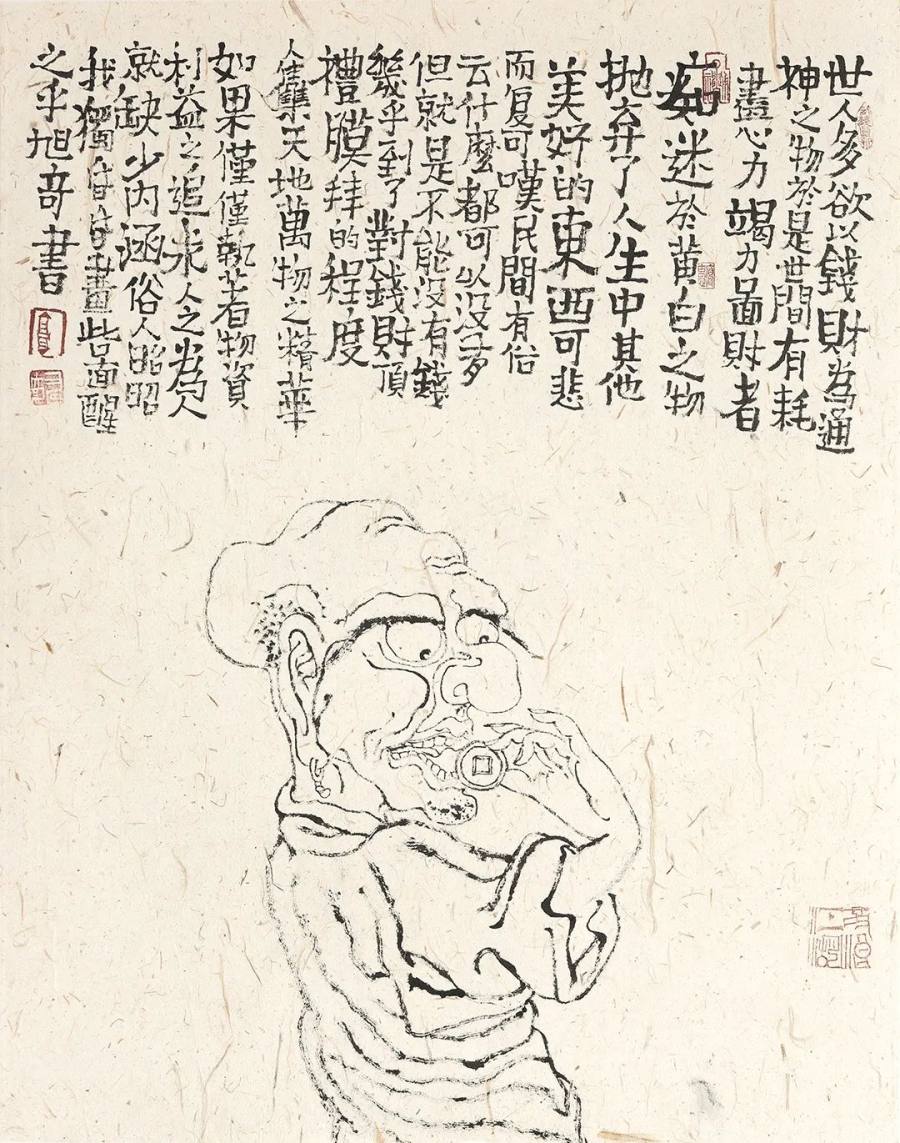 世人多欲以錢財為通
神之物於是世間有耗
盡心力竭力啚財者
痴迷於黄白之物
抛弃了人生中其他
美好的東西可悲
而复可嘆民間有俗
云什麼都可以没多
但就是不能没有錢
幾乎到了對錢財頂
禮膜拜的程度
人集天地萬物之精華
如果僅僅執著物資
利益之追求人之為人
就缺少内涵俗人昭昭
我獨昏昏畫此面醒
之乎旭奇書